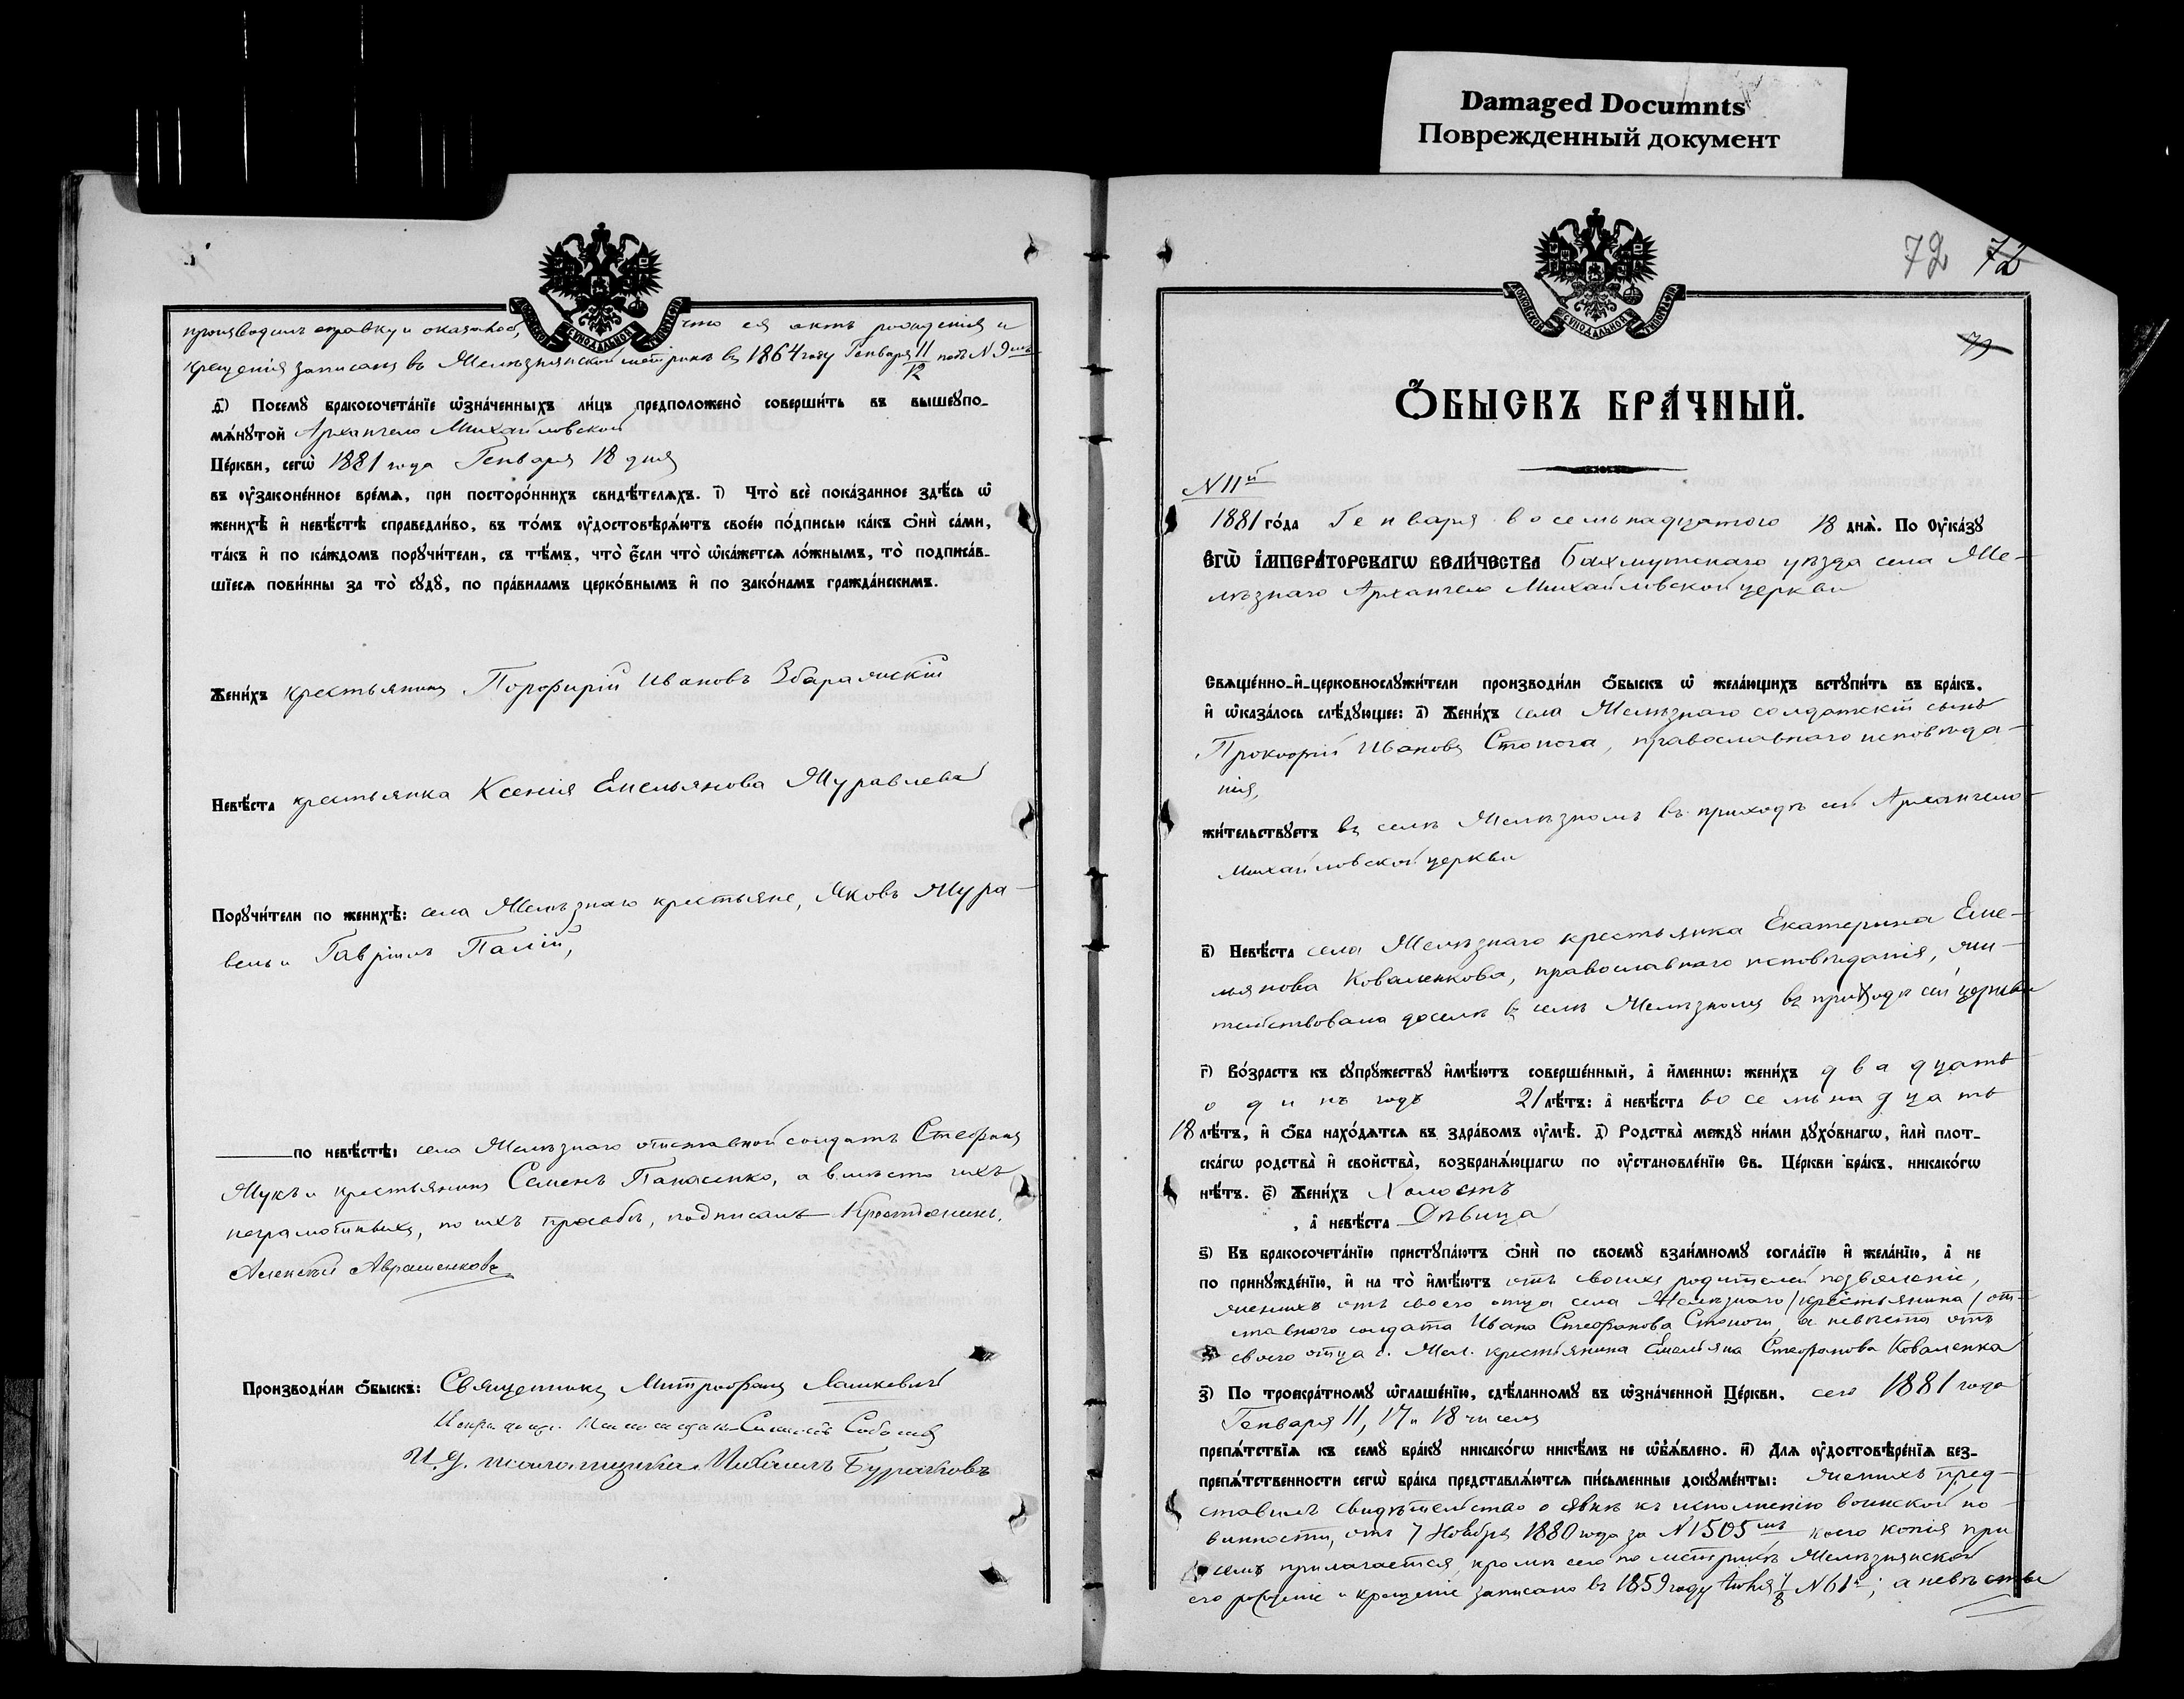 Damaged Documnts
Поврежденный документ
производилъ справку и оказалось, что ея актъ рожденія и
крещенія записанъ въ Желѣзнянской метрикѣ въ 1864 году Генваря 11/12 подъ N 9мъ
д҃) Посемꙋ бракосочета́нїе ѡ҆зна́ченныхъ ли́цъ предположено̀ соверши́ть въ вышеꙋпо-
мѧ́нꙋтой Архангело Михайловской
Це́ркви, сегѡ̀ 1881 года Генваря 18 дня
въ ᲂу҆законе́нное вре́мѧ, при посторо́ннихъ свидѣ́телѧхъ. і҃) Что̀ всѐ пока́занное здѣ́сь ѡ҆
женихѣ̀ и҆ невѣ́стѣ справедли́во, въ то́мъ ᲂу҆достовѣрѧ́ютъ свое́ю по́дписью ка́къ ѻ҆нѝ са́ми,
та́къ и҆ по ка́ждомъ порꙋчи́тели, съ тѣ́мъ, что̀ є҆́сли что̀ ѡ҆ка́жется ло́жнымъ, то̀ подписа́в-
шїеся пови́нны за то̀ сꙋдꙋ̀, по пра́виламъ церко́внымъ и҆ по зако́намъ гражда́нскимъ.
Жени́хъ крестьянинъ Порфирій Ивановъ Збаражскій
Невѣ́ста крестьянка Ксенія Емельянова Журавлева
Порꙋчи́тели по женихѣ̀: села Желѣзнаго крестьяне, Яковъ Жура-
вель и Гавріилъ Палій,
по невѣ́стѣ: села Желѣзнаго отставной солдатъ Стефанъ
Жукъ и крестьянинъ Семенъ Панасенко, а вмѣсто ихъ
неграмотныхъ, по ихъ просьбѣ, подписалъ Крестьянинъ.
Алексѣй Аврашенковъ
Производи́ли ѻ҆́быскъ: Священникъ Митрофанъ Машкевичъ
Соболевъ
И. д. псаломщика Михаилъ Бурачковъ
МОСКОВСКОЙ СѴНОДАЛЬНОЙ ТѴПОГРАФІИ
72 72
Ѻ҆БЫСКЪ БРА́ЧНЫЙ.
N 11й
1881 го́да Генваря восемьнадцатого 18 днѧ̀. По Оу҆ка́зꙋ
Є҆ГѠ̀ І҆МПЕРА́ТОРСКАГѠ ВЕЛИ́ЧЕСТВА Бахмутскаго уѣзда села Же-
лѣзнаго Архангело Михайловской церкви
Свѧще́нно-и҆-церковнослꙋжи́тели производи́ли ѻ҆́быскъ ѡ҆ жела́ющихъ встꙋпи́ть въ бра́къ.
и҆ ѡ҆каза́лось слѣ́дꙋющее: а҃) Жени́хъ села Желѣзнаго солдатскій сынъ
Прокофій Ивановъ Стонога, православнаго исповѣда-
нія,
жи́тельствꙋетъ въ селѣ Желѣзномъ въ приходѣ сей Архангело
Михайловской церкви
в҃) Невѣ́ста села Желѣзнаго крестьянка Екатерина Еме-
льянова Коваленкова, православнаго исповѣданія, жи-
тельствовала доселѣ въ селѣ Желѣзномъ въ приходѣ сей церкви
г҃) Во́зрастъ къ сꙋпрꙋ́жествꙋ и҆мѣ́ютъ соверше́нный, а҆ и҆́меннѡ: жени́хъ двадцать
одинъ годъ 21 лѣ́тъ: а҆ невѣ́ста восемьнадцать
18 лѣ́тъ, и҆ ѻ҆́ба нахо́дѧтсѧ въ здра́вомъ ᲂу҆мѣ̀. д҃) Родства̀ междꙋ ни́ми дꙋхо́внагѡ, и҆лѝ плот-
ска́гѡ родства̀ и҆ свойства̀, возбранѧ́ющагѡ по ᲂу҆становле́нїю Св. Це́ркви бра́къ, никако́гѡ
нѣ́тъ. є҃) Жени́хъ Холостъ
, а҆ невѣ́ста Дѣвица
ѕ҃) Къ бракосочета́нїю пристꙋпа́ютъ ѻ҆нѝ по своемꙋ̀ взаи́мномꙋ согла́сїю и҆ жела́нїю, а҆ не
по принꙋжде́нїю, и҆ на то̀ и҆мѣ́ютъ отъ своихъ родителей позволеніе,
женихъ отъ своего отца села Желѣзнаго /крестьянина/ от-
ставного солдата Ивана Стефанова Стоноги, а невѣста отъ
своего отца с. Жел. крестьянина Емельяна Стефанова Коваленка
з҃) По троекра́тномꙋ ѡ҆глаше́нїю, сдѣ́ланномꙋ въ ѡ҆зна́ченной Це́ркви, сего 1881 года
Генваря 11, 17 и 18 чиселъ
препѧ́тствїѧ къ семꙋ̀ бра́кꙋ никако́гѡ никѣ́мъ не ѡ҆б̾ѧ́влено. и҃) Длѧ ᲂу҆достовѣре́нїѧ без-
препѧ́тственности сегѡ̀ бра́ка представлѧ́ютсѧ пи́сьменные докꙋме́нты: женихъ пред-
ставилъ свидѣтельство о явкѣ къ исполненію воинской по-
винности, отъ 7 Ноября 1880 года за N 1505мъ коего копія при
семъ прилагается, кромѣ сего по метрикѣ Желѣзнянской
его рожденіе и крещеніе записано въ 1859 году Іюля 7/8 N 61й; а невѣсты
МОСКОВСКОЙ СѴНОДАЛЬНОЙ ТѴПОГРАФІИ